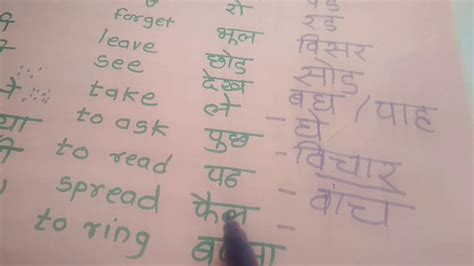 रो रड
forget भूल विसर
leave छोड सोड
see देख बघ / पाह
take ले - घे
to ask पुछ - विचार
to read पढ - वांच
spread फैल -
to ring